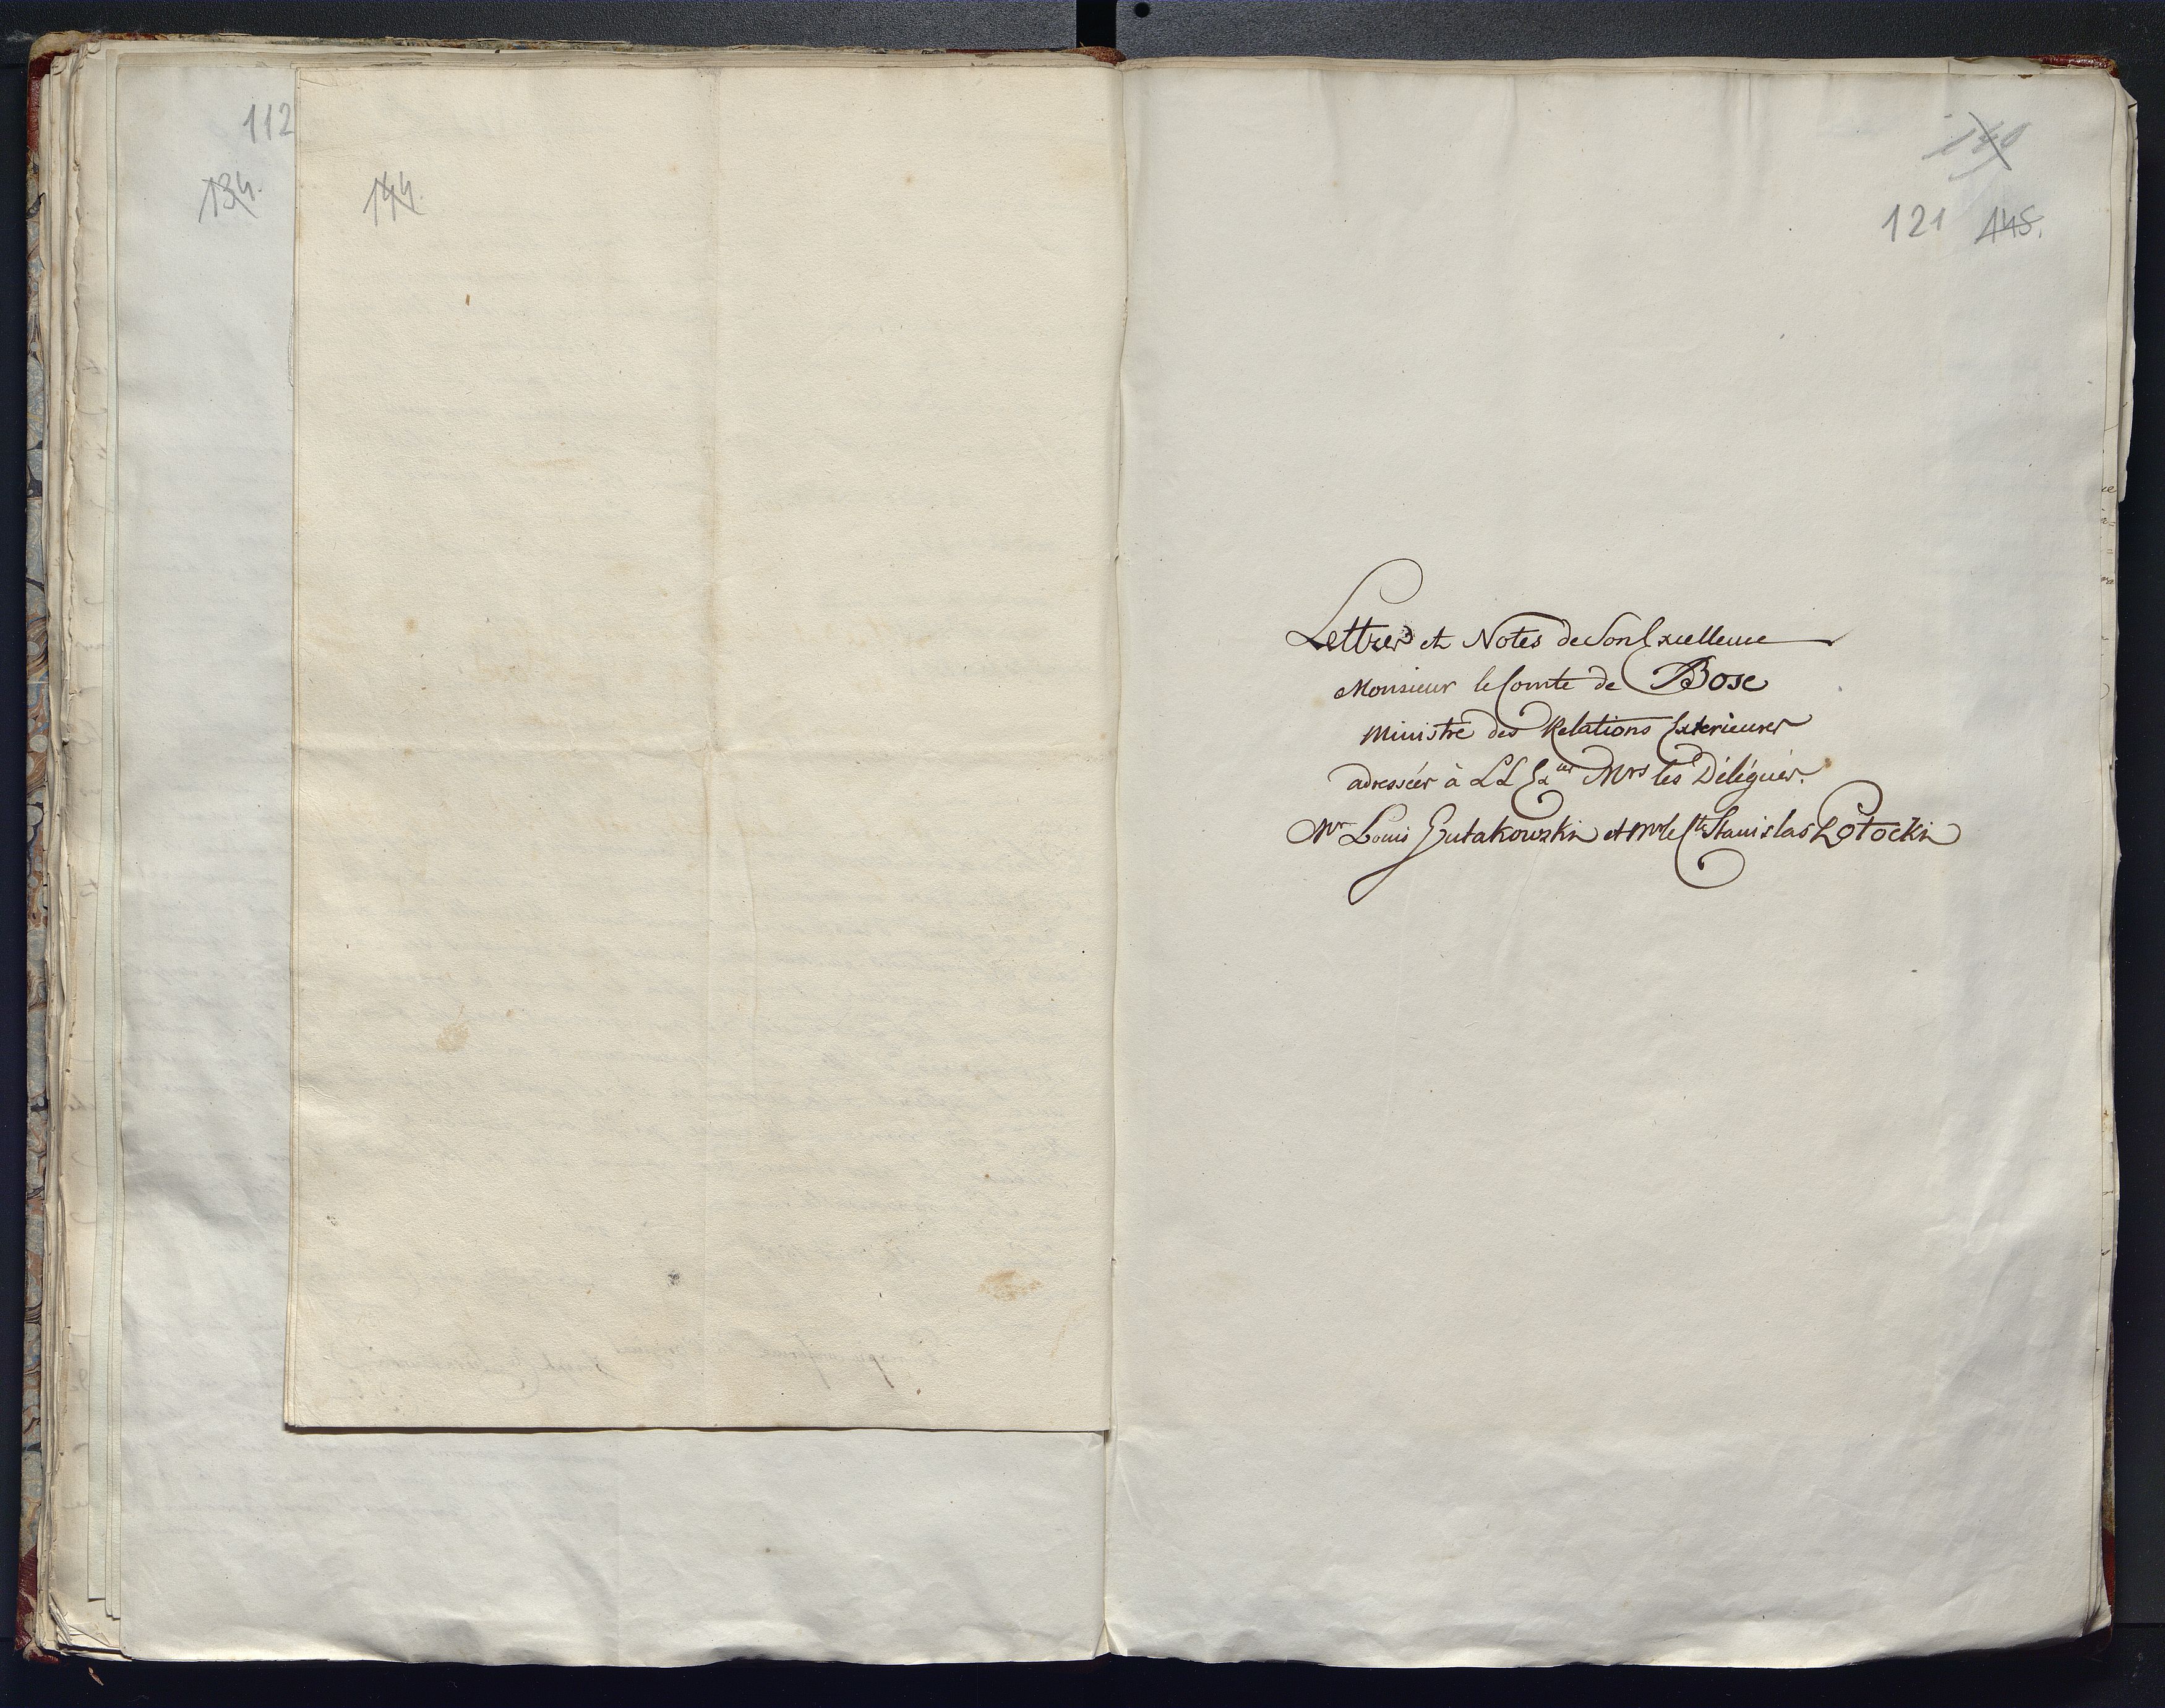 112
134.
144.
140
121 145.
Lettres et Notes de Son Excellence
Monsieur le Comte de Bose
Ministre des Relations Exterieures
adressées à LL Exces Mrs les Délégués.
Mr Louis Gutakowski et Mr le Cte Stanislas Potocki